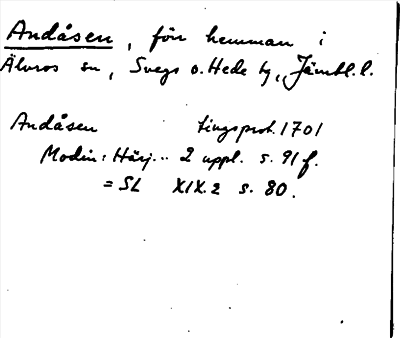 Andåsen, förr hemman i
Älvros sn, Svegs o. Hede tg, Jämtl. l.
Andåsen tingsprot. 1701
Modin: Härj... 2 uppl. s. 91 f.
= SL XIX.2 s. 80.